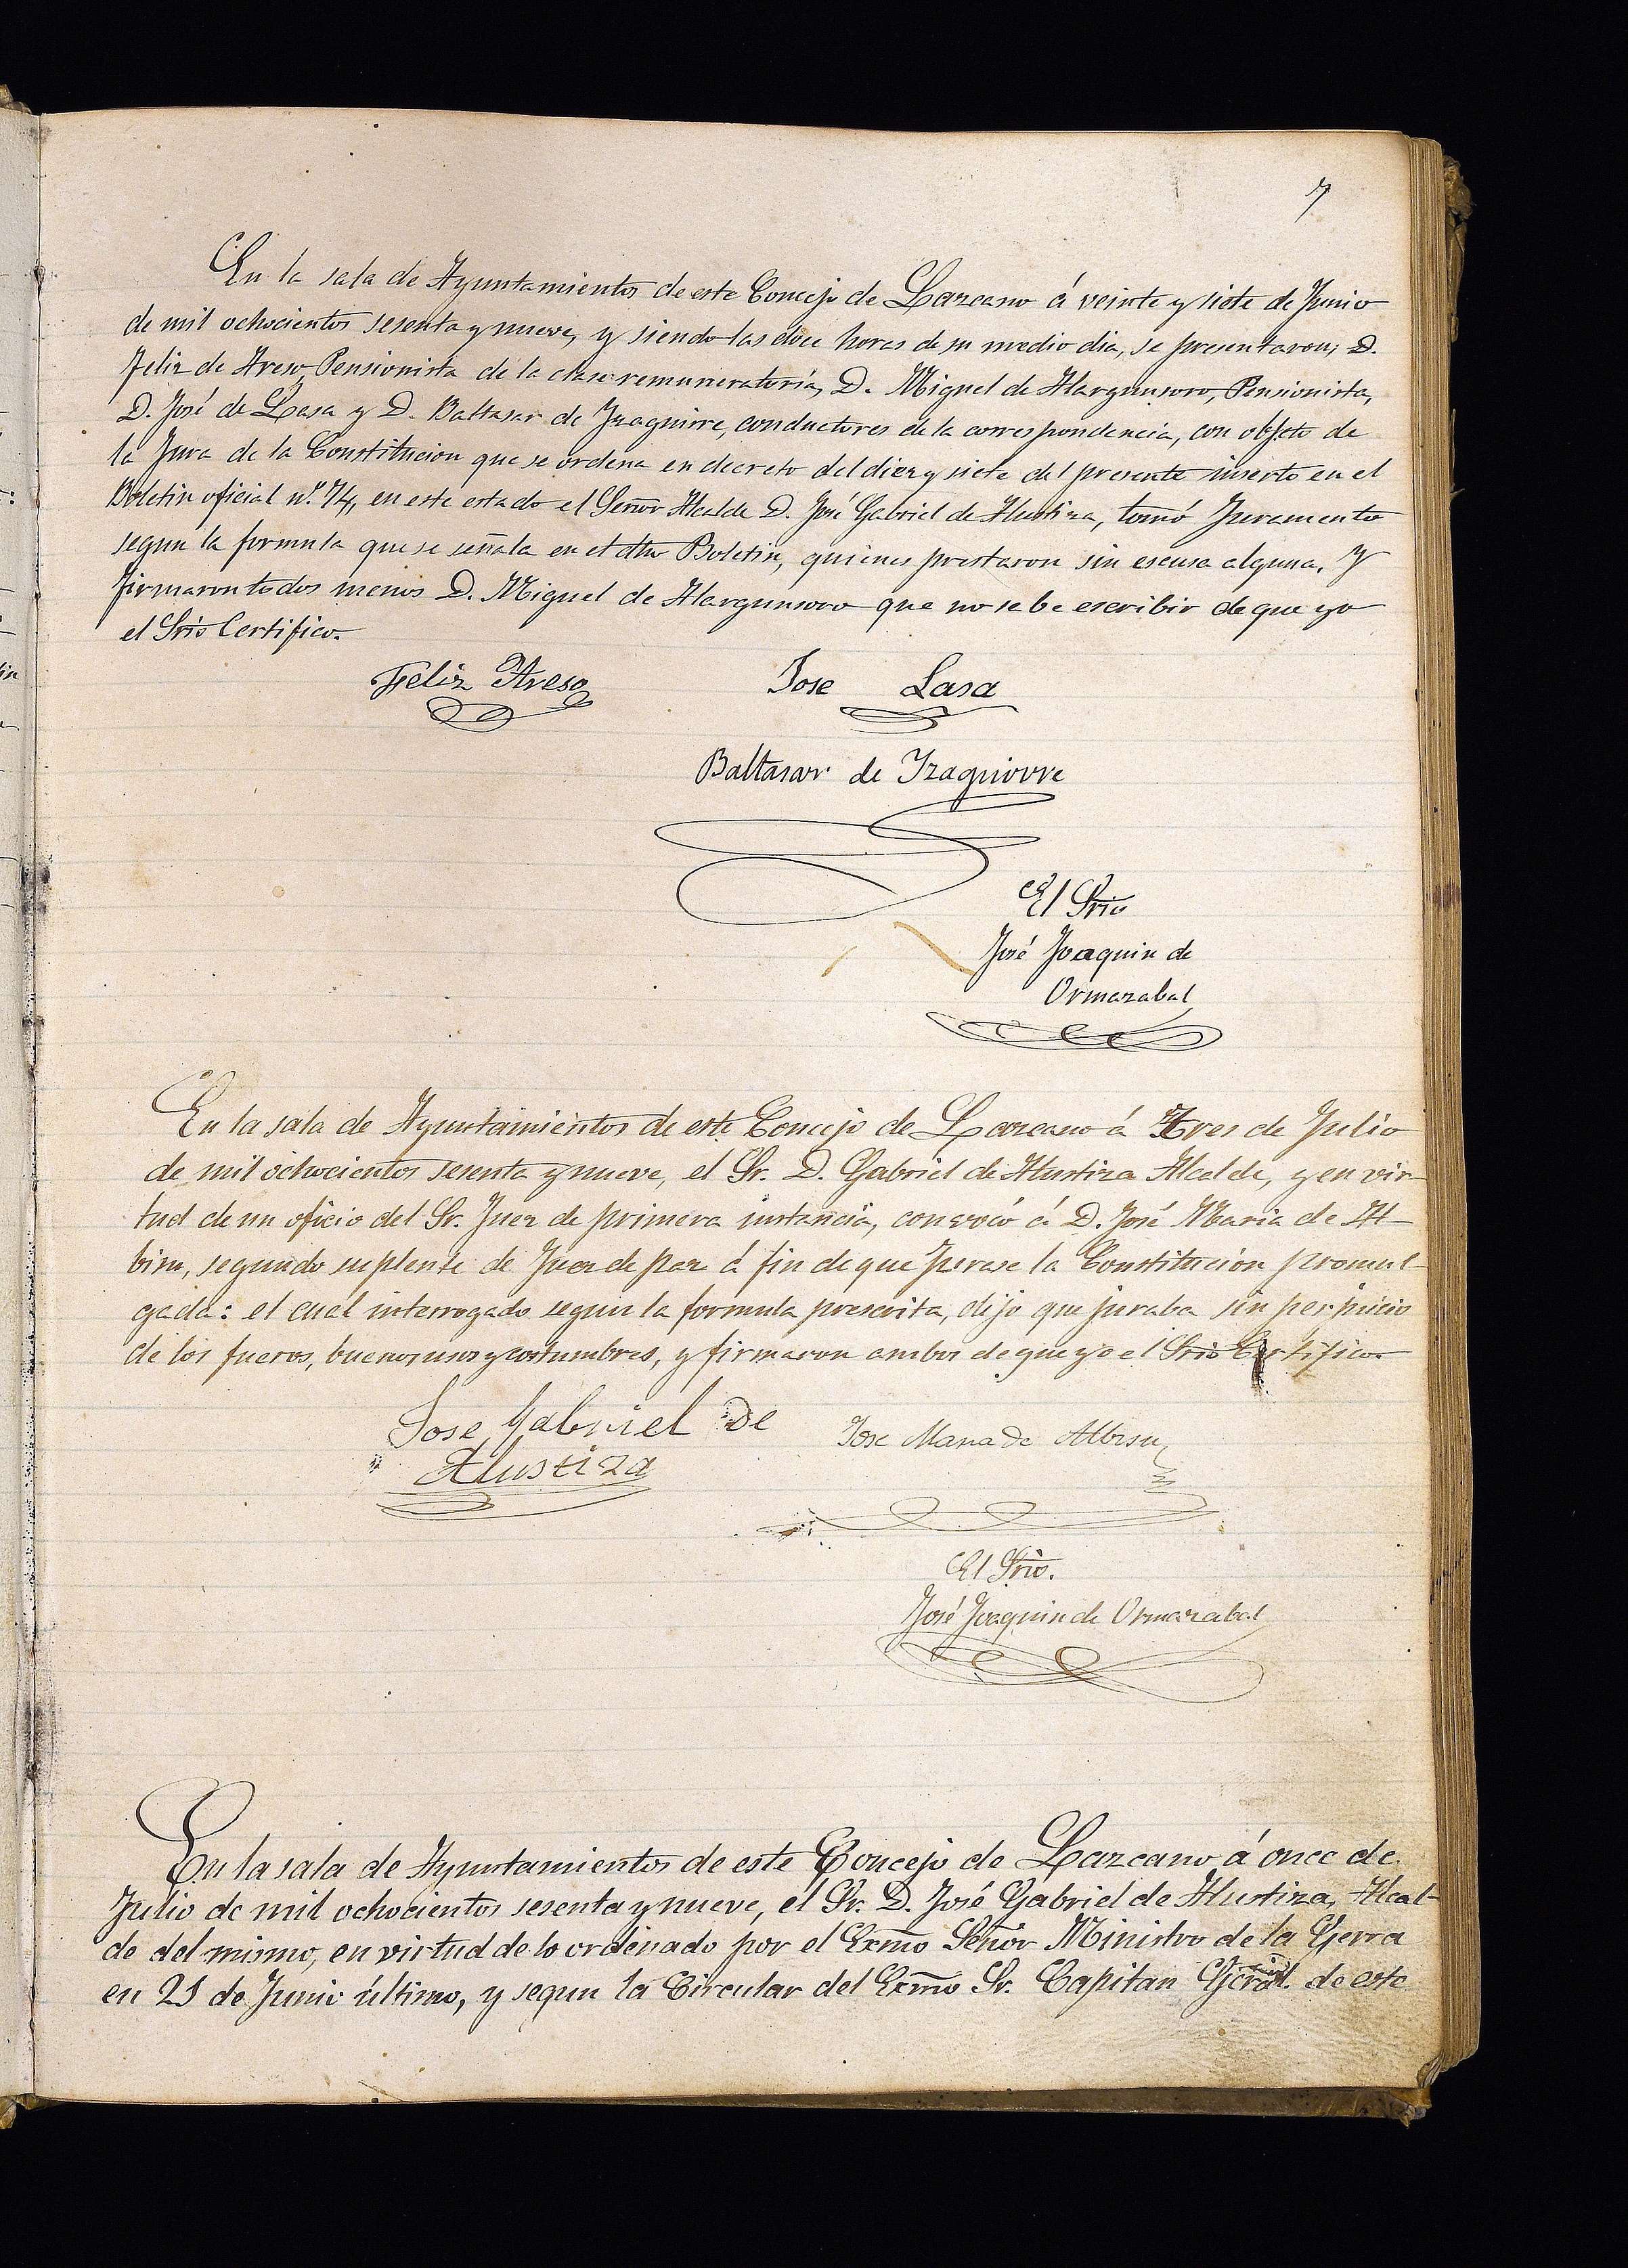 7
En la sala de Ayuntamientos de este Concejo de Lazcano á veinte y siete de Junio
de mil ochocientos sesenta y nueve, y siendo las doce horas de su medio dia, se presentaron; D.
Feliz de Areso, Pensionista de la clase remuneratoria, D. Miguel de Alargunsoro, Pensionista,
D. José de Lasa y D. Baltasar de Yzaguirre, conductores de la correspondencia, con objeto de
la Jura de la Constitucion que se ordena en decreto del diez y siete del presente inserto en el
Boletin oficial n.º 74, en este estado el Señor Alcalde D. José Gabriel de Alustiza, tomó Juramento
segun la formula que se señala en el dho Boletin, quienes prestaron sin escusa alguna. Y
firmaron todos menos D. Miguel de Alargunsoro que no sabe escribir de que yo
el Srio Certifico.
Feliz Areso Jose Lasa
Baltasar de Yzaguirre
El Srio
José Joaquin de
Ormazabal
En la sala de Ayuntamientos de este Concejo de Lazcano á Tres de Julio
de mil ochocientos sesenta y nueve, el Sr. D. Gabriel de Alustiza Alcalde, y en vir-
tud de un oficio del Sr. Juez de primera instancia, convocó á D. José Maria de Al-
bisu, segundo suplente de Juez de paz á fin de que jurase la Constitución promul-
gada: el cual interrogado segun la formula prescrita, dijo que juraba sin perjuicio
de los fueros, buenos usos y costumbres, y firmaron ambos de que yo el Srio Certifico
Jose Gabriel de Jose Maria de Albisu
Alustiza
El Srio.
José Joaquin de Ormazabal
En la sala de Ayuntamientos de este Concejo de Lazcano á once de
Julio de mil ochocientos sesenta y nueve, el Sr. D. José Gabriel de Alustiza, Alcal-
de del mismo, en virtud de lo ordenado por el Exmo Señor Ministro de la Gerra
en 21 de Junio último, y segun la Circular del Exmo Sr. Capitan Geral. de este